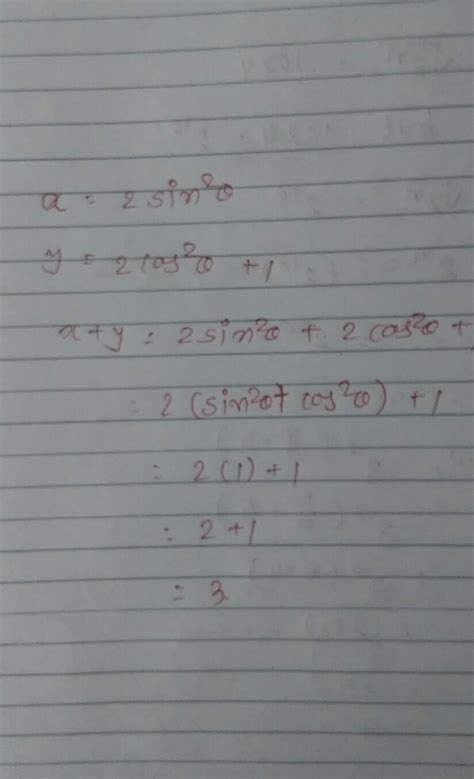 x = 2 sin²θ
y = 2 cos²θ + 1
x + y = 2 sin²θ + 2 cos²θ +
= 2 (sin²θ + cos²θ) + 1
= 2 (1) + 1
= 2 + 1
= 3